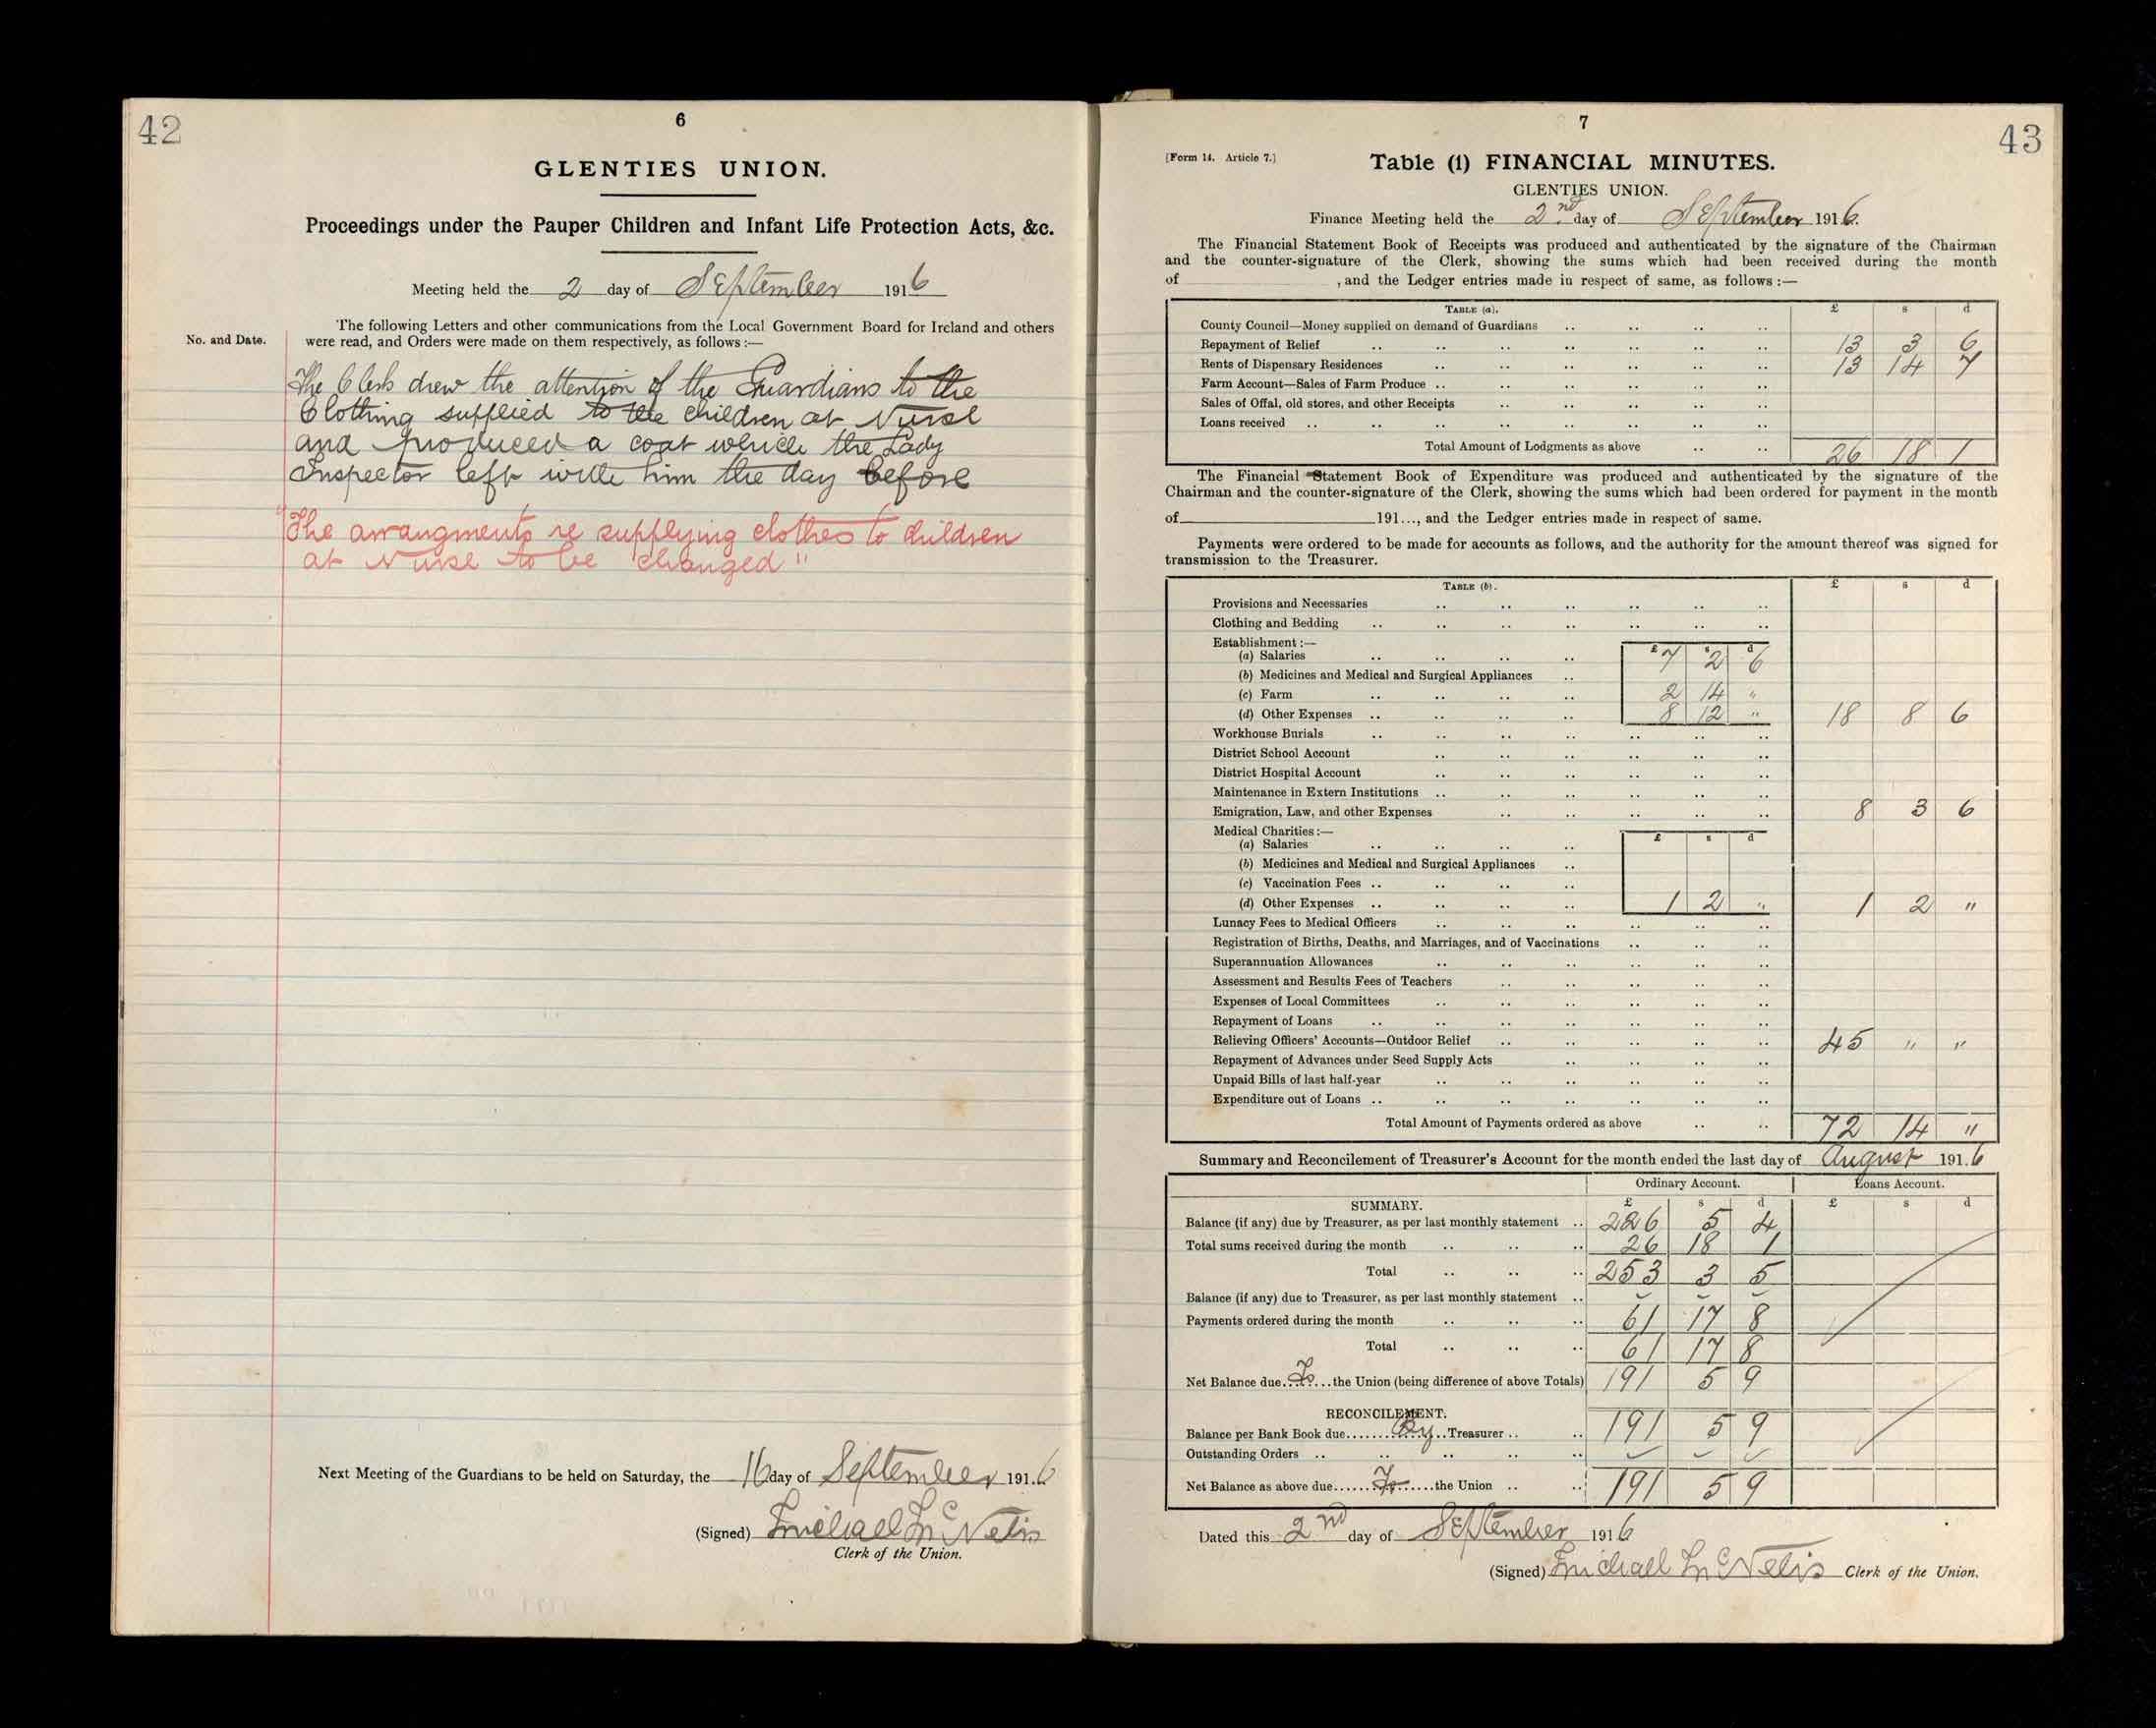 42
6
GLENTIES UNION.
Proceedings under the Pauper Children and Infant Life Protection Acts, &c.
Meeting held the 2 day of September 1916
No. and Date.
The following Letters and other communications from the Local Government Board for Ireland and others
were read, and Orders were made on them respectively, as follows :—
The Clerk drew the attention of the Guardians to the
Clothing supplied to the children at Nurse
and produced a coat which the Lady
Inspector left with him the day before
"The arrangments re supplying clothes to children
at Nurse to be changed"
Next Meeting of the Guardians to be held on Saturday, the 16 day of September 191.6
(Signed) Michael McNelis
Clerk of the Union.
7
43
[Form 14. Article 7.]
Table (1) FINANCIAL MINUTES.
GLENTIES UNION.
Finance Meeting held the 2nd day of September 1916.
The Financial Statement Book of Receipts was produced and authenticated by the signature of the Chairman
and the counter-signature of the Clerk, showing the sums which had been received during the month
of , and the Ledger entries made in respect of same, as follows :—
TABLE (a). £ s d
County Council—Money supplied on demand of Guardians .. .. .. ..
Repayment of Relief .. .. .. .. .. .. .. 13 3 6
Rents of Dispensary Residences .. .. .. .. .. .. 13 14 7
Farm Account—Sales of Farm Produce .. .. .. .. .. ..
Sales of Offal, old stores, and other Receipts .. .. .. .. ..
Loans received .. .. .. .. .. .. .. ..
Total Amount of Lodgments as above .. .. 26 18 1
The Financial Statement Book of Expenditure was produced and authenticated by the signature of the
Chairman and the counter-signature of the Clerk, showing the sums which had been ordered for payment in the month
of 191..., and the Ledger entries made in respect of same.
Payments were ordered to be made for accounts as follows, and the authority for the amount thereof was signed for
transmission to the Treasurer.
TABLE (b). £ s d
Provisions and Necessaries .. .. .. .. .. ..
Clothing and Bedding .. .. .. .. .. .. ..
Establishment :—
£ s d
(a) Salaries .. .. .. .. 7 2 6
(b) Medicines and Medical and Surgical Appliances ..
(c) Farm .. .. .. .. 2 14 "
(d) Other Expenses .. .. .. .. 8 12 " 18 8 6
Workhouse Burials .. .. .. .. .. .. ..
District School Account .. .. .. .. .. ..
District Hospital Account .. .. .. .. .. ..
Maintenance in Extern Institutions .. .. .. .. .. ..
Emigration, Law, and other Expenses .. .. .. .. .. 8 3 6
Medical Charities :—
£ s d
(a) Salaries .. .. .. ..
(b) Medicines and Medical and Surgical Appliances ..
(c) Vaccination Fees .. .. .. ..
(d) Other Expenses .. .. .. .. 1 2 " 1 2 "
Lunacy Fees to Medical Officers .. .. .. .. .. ..
Registration of Births, Deaths, and Marriages, and of Vaccinations .. .. ..
Superannuation Allowances .. .. .. .. .. ..
Assessment and Results Fees of Teachers .. .. .. .. ..
Expenses of Local Committees .. .. .. .. .. ..
Repayment of Loans .. .. .. .. .. .. ..
Relieving Officers' Accounts—Outdoor Relief .. .. .. .. .. 45 " "
Repayment of Advances under Seed Supply Acts .. .. .. ..
Unpaid Bills of last half-year .. .. .. .. .. ..
Expenditure out of Loans .. .. .. .. .. .. ..
Total Amount of Payments ordered as above .. .. 72 14 "
Summary and Reconcilement of Treasurer's Account for the month ended the last day of August 191.6
Ordinary Account. Loans Account.
SUMMARY. £ s d £ s d
Balance (if any) due by Treasurer, as per last monthly statement .. 226 5 4
Total sums received during the month .. .. .. 26 18 1
Total .. .. .. 253 3 5
Balance (if any) due to Treasurer, as per last monthly statement .. – – –
Payments ordered during the month .. .. .. 61 17 8
Total .. .. .. 61 17 8
Net Balance due..To...the Union (being difference of above Totals) 191 5 9
RECONCILEMENT.
Balance per Bank Book due.......By..Treasurer .. .. 191 5 9
Outstanding Orders .. .. .. .. .. – – –
Net Balance as above due......To......the Union .. .. 191 5 9
Dated this 2nd day of September 1916
(Signed) Michael McNelis Clerk of the Union.